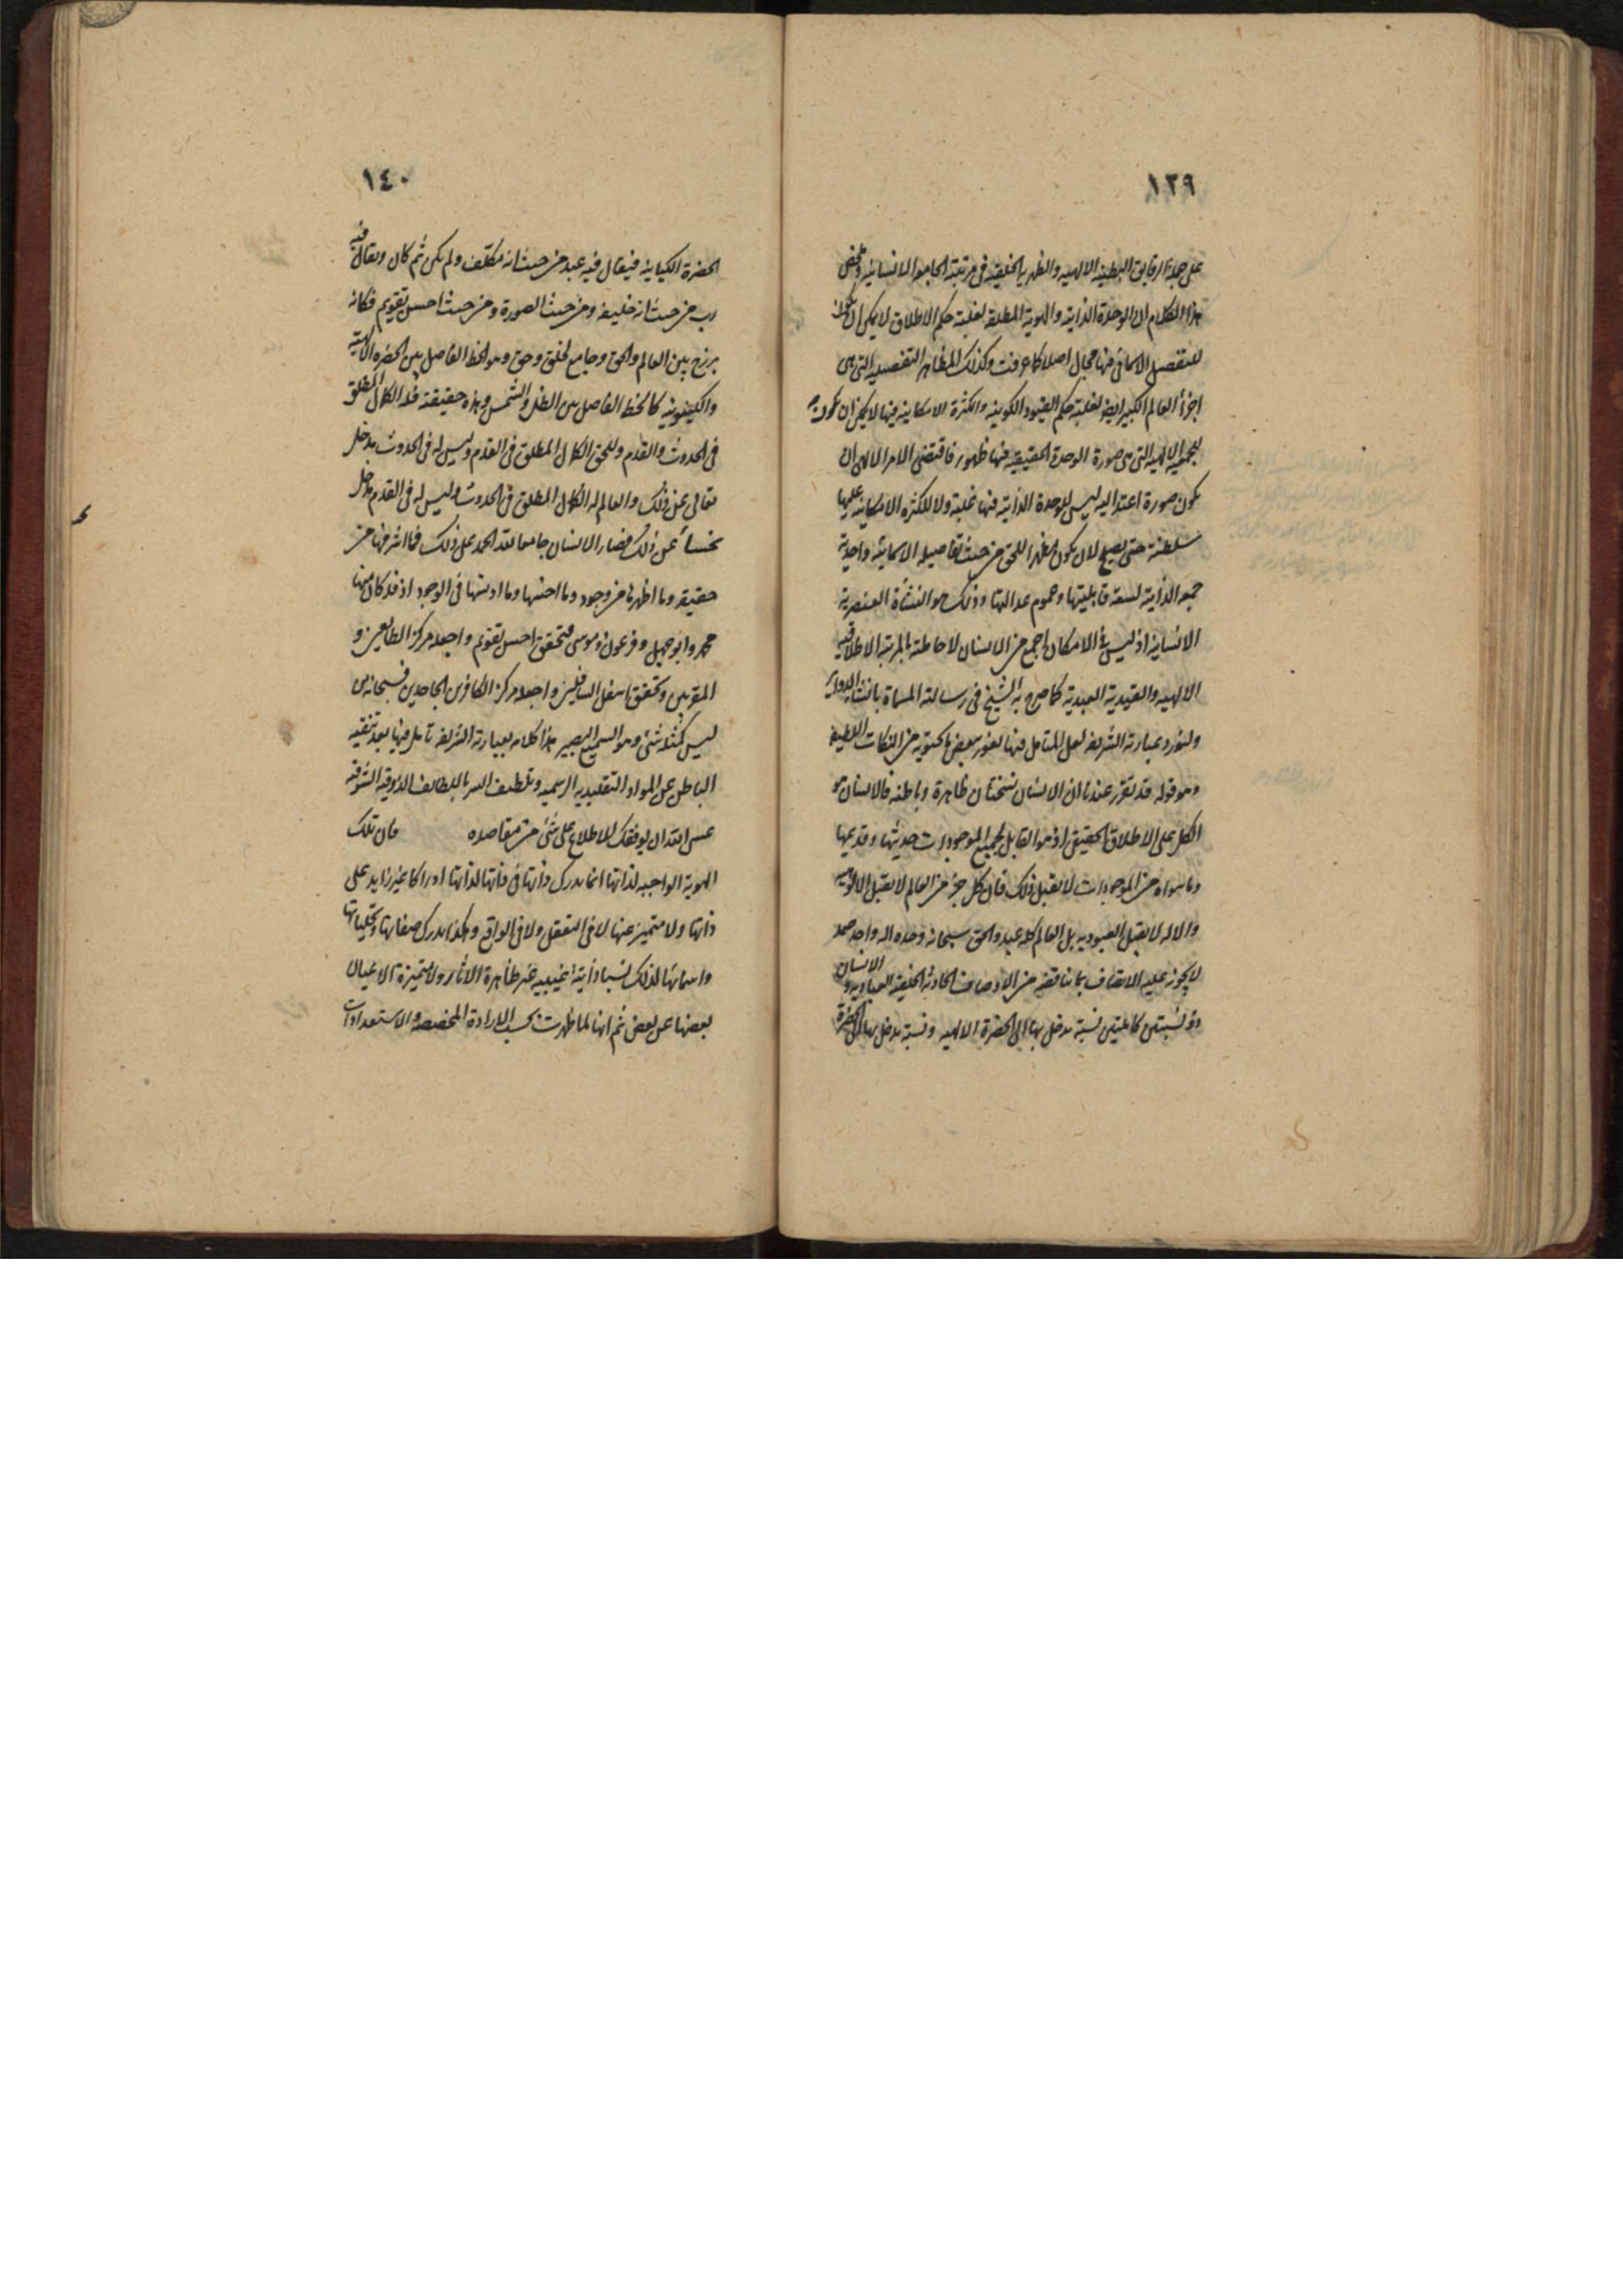 ١٣٩
على جملة الرقايق البطنية الالهيه والظهرية الخلقيه فى مرتبته الجامعة الانسانيه وملخص
هذا الكلام ان الوحدة الذاتيه والهوية المطلقه لغلبة حكم الاطلاق لا يمكن ان يكون
للتفصيل الاسمائى فيها مجال اصلا كما عرفت وكذلك المظاهر التفصيليه التى هى
اجزأ العالم الكبير ايضا لغلبة حكم القيود الكونيه والكثرة الامكانيه فيها لا يمكن ان يكون
للجمعية الالهيه التى هى صورة الوحدة الحقيقيه فيها ظهور فاقتضى الامر الالهى ان
يكون صورة اعتداليه ليس للوحدة الذاتيه فيها غلبة ولا للكثره الامكانيه عليها
سلطنة حتى يصلح لان يكون مظهرا للحق من حيث تفاصيله الاسمائيه واحدية
جمعه الذاتيه لسعة قابليتها وعموم عدالتها وذلك هو النشأة العنصرية
الانسانيه اذ ليس فى الامكان اجمع من الانسان لاحاطته بالمرتبة الاطلاقيه
الالهيه والقيدية العبدية كما صرح به الشيخ فى رسالته المسماة بانشاء الدواير
ولنورد عبارته الشريفه لعل المتامل فيها يفوز ببعض ما يحتويه من النكات اللطيفه
وهو قوله قد تقرر عندنا ان الانسان نسختان ظاهرة وباطنه فالانسان هو
الكل على الاطلاق الحقيقى اذ هو القابل لجميع الموجودات حديثها وقديمها
وما سواه من الموجودات لا يقبل ذلك فان كل جزء من العالم لا يقبل الالوهيه
والاله لا يقبل العبوديه بل العالم كله عبد والحق سبحانه وحده اله واحد صمد
لا يجوز عليه الاتصاف بما يناقضه من الاوصاف الحادثه الخلقيه العباديه والانسان
ذو نسبتين كاملتين نسبة يدخل بها الى الحضرة الالهيه ونسبة يدخل بها الى الحضرة
١٤٠
الحضرة الكيانيه فيقال فيه عبد من حيث انه مكلف ولم يكن ثم كان ويقال فيه
رب من حيث انه خليفه ومن حيث الصورة ومن حيث احسن تقويم فكانه
برزخ بين العالم والحق وجامع لخلق وحق وهو الخط الفاصل بين الحضره الالهية
والكونيه كالخط الفاصل بين الظل والشمس وهذه حقيقته فله الكمال المطلق
فى الحدوث والقدم وللحق الكمال المطلق فى القدم وليس له فى الحدوث مدخل
تعالى عن ذلك والعالم له الكمال المطلق فى الحدوث وليس له فى القدم مدخل
يخسأ عن ذلك فصار الانسان جامعا لله الحمد على ذلك فما اشرفها من
حقيقه وما اظهرها من وجود وما اخسها وما ادنسها فى الوجود اذ قد كان منها
محمد وابو جهل وفرعون وموسى فتحقق احسن تقويم واجعله مركز الطايعين و
المقربين وتحقق اسفل السافلين واجعله مركز الكافرين الجاحدين فسبحان من
ليس كمثله شئ وهو السميع البصير هذا كلامه بعبارته الشريفه تامل فيها بعد تنقيه
الباطن عن المواد التقليديه الرسميه وتلطيف السر باللطائف الذوقيه الشوقيه
عسى الله ان يوفقك للاطلاع على شئ من مقاصده فان تلك
الهوية الواجبه لذاتها انما يدرك ذاتها فى ذاتها لذاتها ادراكا غير زايد على
ذاتها ولا متميز عنها لا فى التعقل ولا فى الواقع وهكذا يدرك صفاتها وتجلياتها
واسمائها كذلك نسبا ذاتية غيبيه غير ظاهرة الاثار ولا متميزة الاعيان
بعضها عن بعض ثم انها لما ظهرت بحسب الارادة المخصصه والاستعدادات